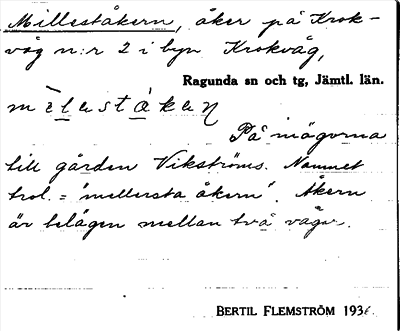 Milleståkern, åker på Krok-
våg n:r 2 i byn Krokvåg,
Ragunda sn och tg, Jämtl. län.
milestakeṇ
På inägorna
till gården Vikströms. Namnet
trol. = "mellersta åkern". Åkern
är belägen mellan två vägar.
BERTIL FLEMSTRÖM 1936.